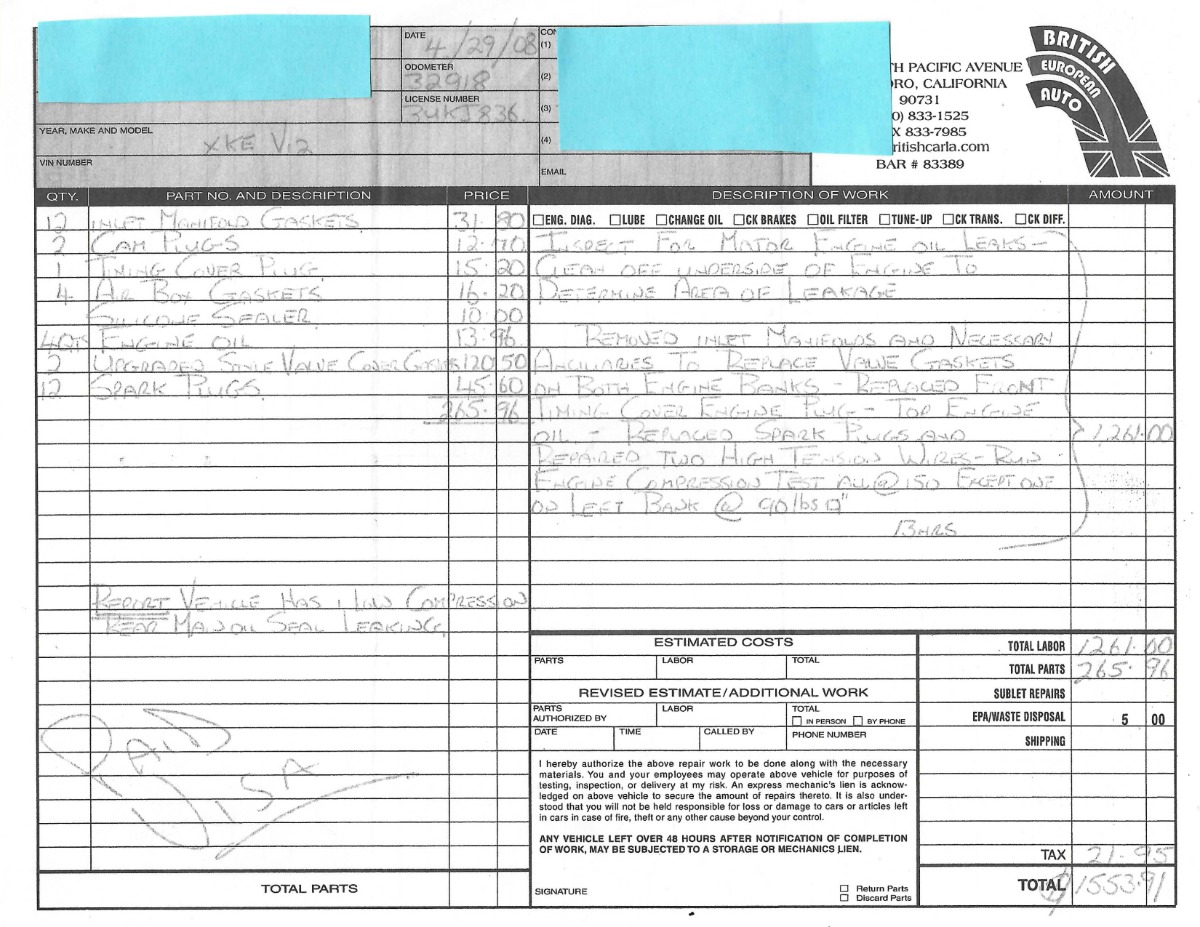 DATE
4/29/08
ODOMETER
32918
LICENSE NUMBER
3UKJ836
YEAR, MAKE AND MODEL
XKE V12
VIN NUMBER
(1)
(2)
(3)
(4)
EMAIL
TH PACIFIC AVENUE
RO, CALIFORNIA
90731
0) 833-1525
X 833-7985
ritishcarla.com
BAR # 83389
BRITISH
EUROPEAN
AUTO
QTY. PART NO. AND DESCRIPTION PRICE
12 INLET MANIFOLD GASKETS 31.80
2 CAM PLUGS 12.70
1 TIMING COVER PLUG 15.20
4 AIR BOX GASKETS 16.20
SILICONE SEALER 10.00
4QTS ENGINE OIL 13.96
2 UPGRADED STYLE VALVE COVER GASKETS 120.50
12 SPARK PLUGS 45.60
265.96
REPORT VEHICLE HAS 1 LOW COMPRESSION
REAR MAIN OIL SEAL LEAKING
PAID
VISA
TOTAL PARTS
DESCRIPTION OF WORK AMOUNT
ENG. DIAG. LUBE CHANGE OIL CK BRAKES OIL FILTER TUNE-UP CK TRANS. CK DIFF.
INSPECT FOR MOTOR ENGINE OIL LEAKS -
CLEAN OFF UNDERSIDE OF ENGINE TO
DETERMINE AREA OF LEAKAGE
REMOVED INLET MANIFOLDS AND NECESSARY
ANCILIARIES TO REPLACE VALVE GASKETS
ON BOTH ENGINE BANKS - REPLACED FRONT
TIMING COVER ENGINE PLUG - TOP ENGINE
OIL - REPLACED SPARK PLUGS AND 1,261.00
REPAIRED TWO HIGH TENSION WIRES - RUN
ENGINE COMPRESSION TEST ALL @ 150 EXCEPT ONE
ON LEFT BANK @ 90 lbs □"
13 HRS
ESTIMATED COSTS
PARTS LABOR TOTAL
REVISED ESTIMATE/ADDITIONAL WORK
PARTS LABOR TOTAL
AUTHORIZED BY IN PERSON BY PHONE
DATE TIME CALLED BY PHONE NUMBER
I hereby authorize the above repair work to be done along with the necessary
materials. You and your employees may operate above vehicle for purposes of
testing, inspection, or delivery at my risk. An express mechanic's lien is acknow-
ledged on above vehicle to secure the amount of repairs thereto. It is also under-
stood that you will not be held responsible for loss or damage to cars or articles left
in cars in case of fire, theft or any other cause beyond your control.
ANY VEHICLE LEFT OVER 48 HOURS AFTER NOTIFICATION OF COMPLETION
OF WORK, MAY BE SUBJECTED TO A STORAGE OR MECHANICS LIEN.
SIGNATURE
Return Parts
Discard Parts
TOTAL LABOR 1261.00
TOTAL PARTS 265.96
SUBLET REPAIRS
EPA/WASTE DISPOSAL 5 00
SHIPPING
TAX 21.95
TOTAL $1553.91